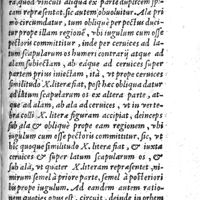 ea quod vinculi aliqua ex parte duplicem spi-
cam repræsentet, fit autem hoc
vò circumductur, tum obliquè per pectus duci-
tur prope illam regionẽ, vbi iugulum cum osse
pectoris committitur, inde per ceruices ad la-
tum scapularum os humeri contrarij atque ad
alam subiectam, ab eaque ad ceruices super
partem prius iniectam, ita, vt prope ceruices
similitudo X. litera fiat, post hæc obliquè datur
ad latum scapularum os ex altera parte, ab-
que ad alam, ab ala ad ceruices, vt in verte-
bra colli X. litera figuram accipiat, deinceps
sub ala & obliquè prope eam regionem, vbi
iugulum cum osse pectoris committitur, sic, vt
hic quoque similitudo X. litera fiat, & iuxta
ceruices & super latum scapularum os, &
sub ala, vt quater X. literam repræsentet, ni-
mirum semel à priore parte, semel à posteriori
bis prope iugulum. Ad eandem autem ratio-
nem quoties opus est, circuit, deinde in orbem